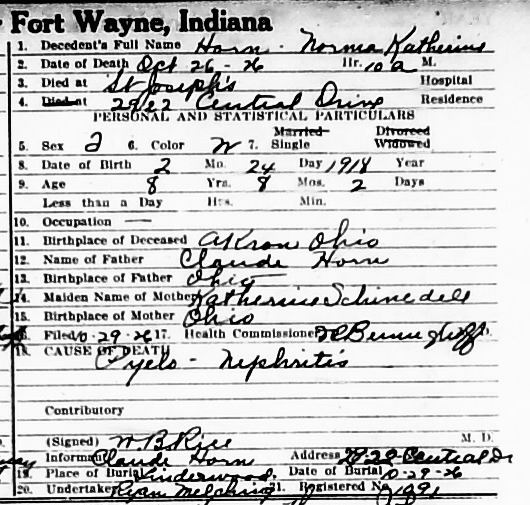 Fort Wayne, Indiana
1. Decedent's Full Name Horn - Norma Katherine
2. Date of Death Oct 26 - 26 Hr. 10 a M.
3. Died at St Joseph's Hospital
4. Died at Central Drive Residence
PERSONAL AND STATISTICAL PARTICULARS
Married Divorced
5. Sex 6. Color W 7. Single Widowed
8. Date of Birth 2 Mo. 24 Day 1918 Year
9. Age 8 Yrs. 8 Mos. 2 Days
Less than a Day Hrs. Min.
10. Occupation —
11. Birthplace of Deceased Akron Ohio
12. Name of Father Claude Horn
13. Birthplace of Father Ohio
14. Maiden Name of Mother Katherine
15. Birthplace of Mother Ohio
Filed 10-29-26 17. Health Commissioner
18. CAUSE OF DEATH
Pyelo - Nephritis
Contributory
(Signed) W B Rice M. D.
Informant Claude Horn Address Central Dr
19. Place of Burial Lindenwood, Date of Burial 10-29-26
20. Undertaker 21. Registered No.